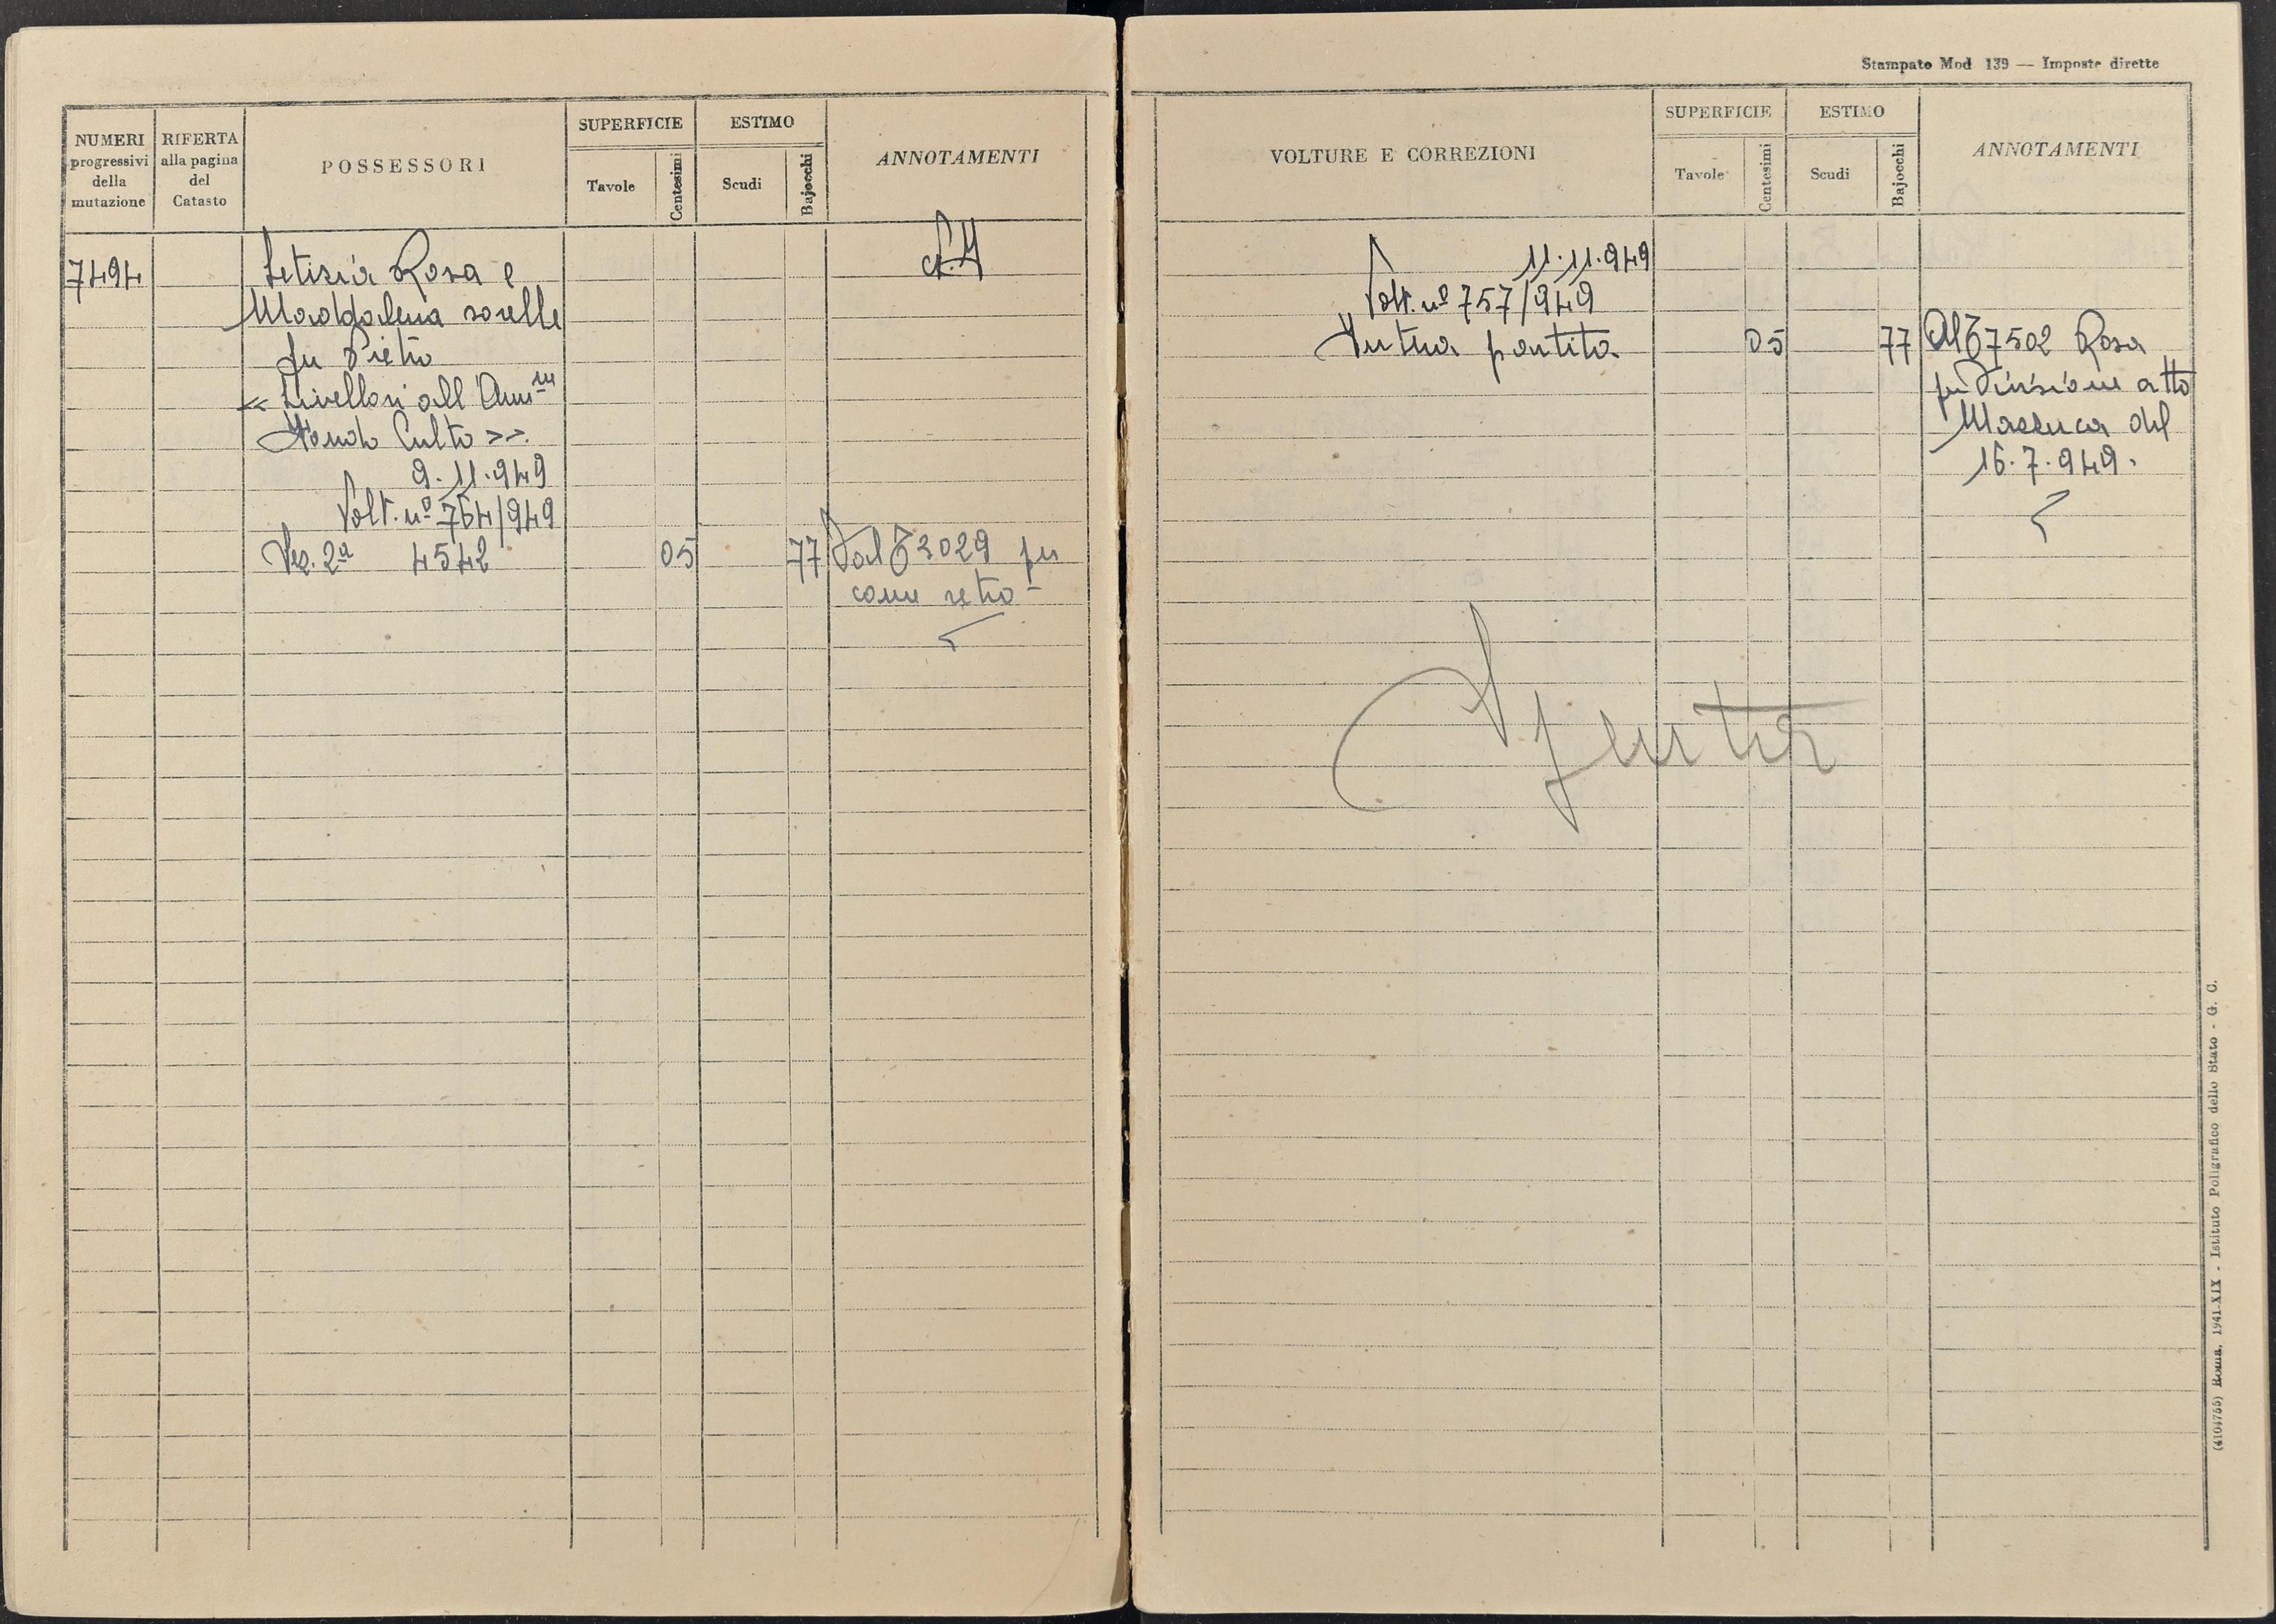 NUMERI progressivi della mutazione
RIFERTA alla pagina del Catasto
POSSESSORI
SUPERFICIE
Tavole
Centesimi
ESTIMO
Scudi
Bajocchi
ANNOTAMENTI
7494
Letizia Rosa e
Maddalena sorelle
fu Pietro
« Livellari all'Amm.ne
Fondo Culto ».
9.11.949
Volt. nº 764/949
Sez. 2ª 4542 05 77 Dal T 3029 per
come retro -
Stampato Mod 139 — Imposte dirette
VOLTURE E CORREZIONI
SUPERFICIE
Tavole
Centesimi
ESTIMO
Scudi
Bajocchi
ANNOTAMENTI
11.11.949
Volt. nº 757/949
Intera partita 05 77 Al T 7502 Rosa
per divisione atto
Mazzuca del
16.7.949.
Spenta
(4104755) Roma, 1941-XIX - Istituto Poligrafico dello Stato - G. C.